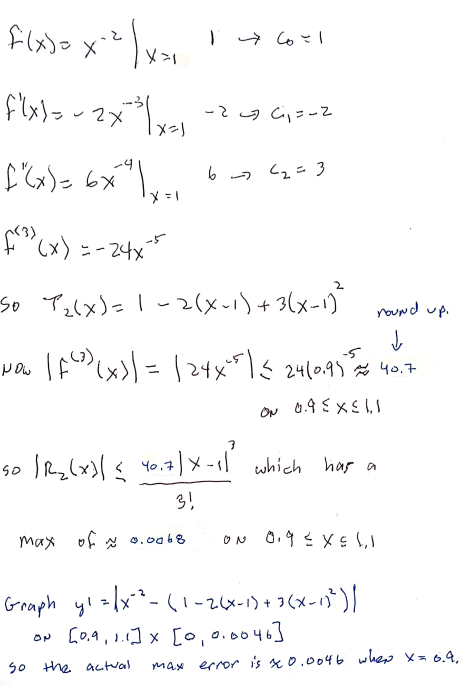 f(x) = x^-2 |x=1 1 → C0 = 1
f'(x) = -2x^-3 |x=1 -2 → C1 = -2
f''(x) = 6x^-4 |x=1 6 → C2 = 3
f^(3)(x) = -24x^-5
So T2(x) = 1 - 2(x-1) + 3(x-1)^2
round up.
↓
Now |f^(3)(x)| = |24x^-5| ≤ 24(0.9)^-5 ≈ 40.7
on 0.9 ≤ x ≤ 1.1
so |R2(x)| ≤ 40.7|x-1|^3 / 3! which has a
max of ≈ 0.0068 on 0.9 ≤ x ≤ 1.1
Graph y1 = |x^-2 - (1 - 2(x-1) + 3(x-1)^2)|
on [0.9, 1.1] x [0, 0.0046]
so the actual max error is ≈ 0.0046 when x = 0.9.